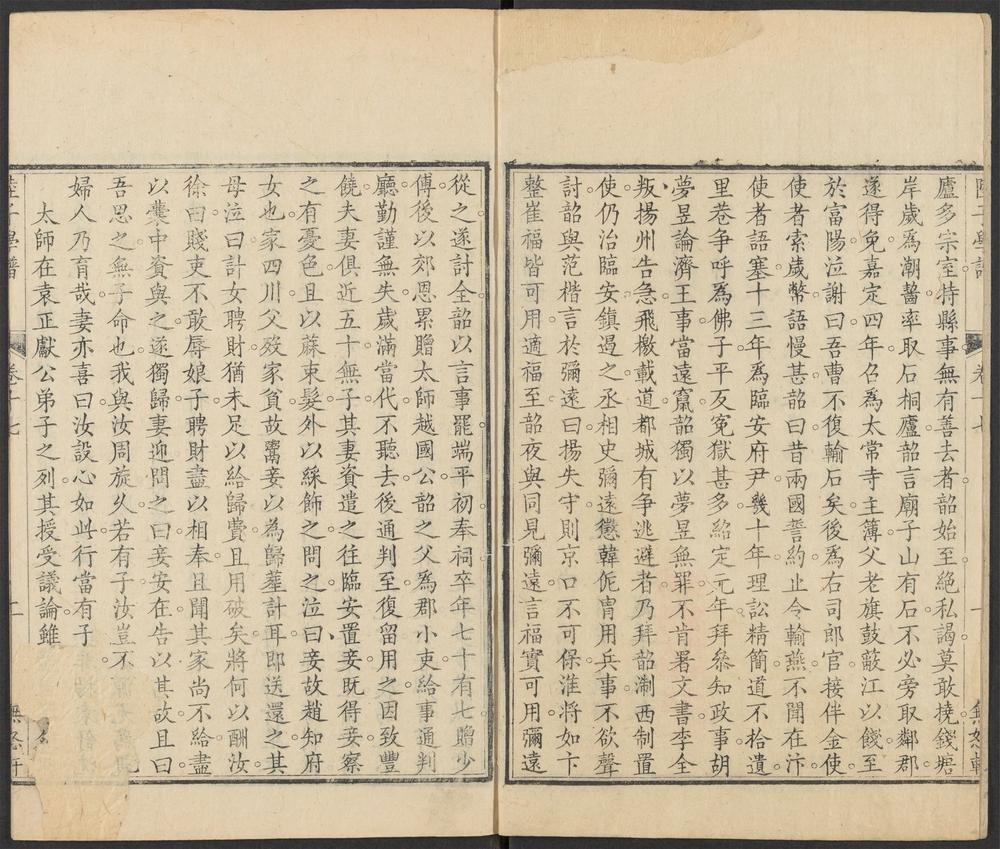 陸子學譜 卷十七 一 無怒軒
廬多宗室恃縣事無有善去者韶始至絕私謁莫敢撓錢塘
岸歲為潮齧率取石桐廬韶言廟子山有石不必旁取鄰郡
遂得免嘉定四年召為太常寺主簿父老旗鼓蔽江以餞至
於富陽泣謝曰吾曹不復輸石矣後為右司郎官接伴金使
使者索歲幣語慢甚韶曰昔兩國誓約止今輸燕不聞在汴
使者語塞十三年為臨安府尹幾十年理訟精簡道不拾遺
里巷争呼為佛子平反冤獄甚多紹定元年拜叅知政事胡
夢昱論濟王事當遠竄韶獨以夢昱無罪不肯署文書李全
叛揚州告急飛檄載道都城有争逃避者乃拜韶淛西制置
使仍治臨安鎮遏之丞相史彌遠懲韓侂胄用兵事不欲聲
討韶與范楷言於彌遠曰揚失守則京口不可保淮將如卞
整崔福皆可用適福至韶夜與同見彌遠言福實可用彌遠
從之遂討全韶以言事罷端平初奉祠卒年七十有七贈少
傅後以郊恩累贈太師越國公韶之父為郡小吏給事通判
廳勤謹無失歲滿當代不聽去後通判至復留用之因致豐
饒夫妻俱近五十無子其妻資遣之往臨安置妾既得妾察
之有憂色且以蔴束髮外以綵飾之問之泣曰妾故趙知府
女也家四川父歿家貧故鬻妾以為歸葬計耳即送還之其
母泣曰計女聘財猶未足以給歸費且用破矣將何以酬汝
徐曰賤吏不敢辱娘子聘財盡以相奉且聞其家尚不給盡
以橐中資與之遂獨歸妻迎問之曰妾安在告以其故且曰
吾思之無子命也我與汝周旋久若有子汝豈不
婦人乃育哉妻亦喜曰汝設心如此行當有子
太師在袁正獻公弟子之列其授受議論雖
陸子學譜 卷十七 二 無怒軒